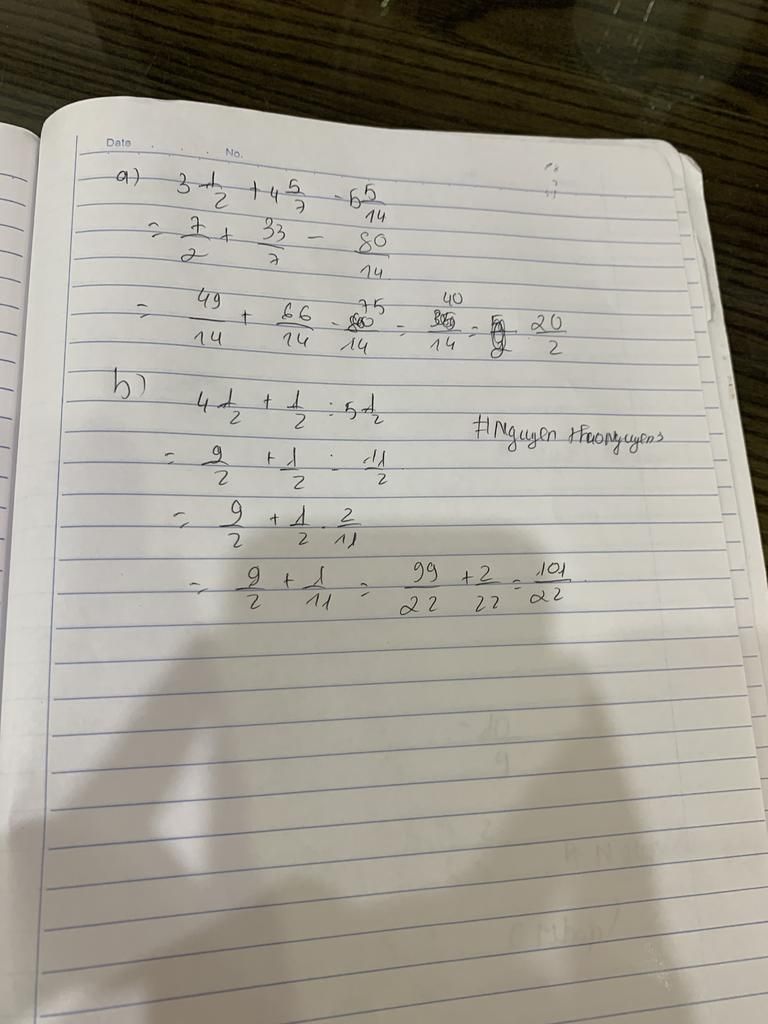 Date . . . . No.
a) 3 1/2 + 4 5/7 - 5 5/14
= 7/2 + 33/7 - 80/14
= 49/14 + 66/14 - 75/14 = 40/14 = 20/2
b) 4 1/2 + 1/2 : 5 1/2
#Nguyen
= 9/2 + 1/2 : 11/2
= 9/2 + 1/2 . 2/11
= 9/2 + 1/11 = 99/22 + 2/22 = 101/22